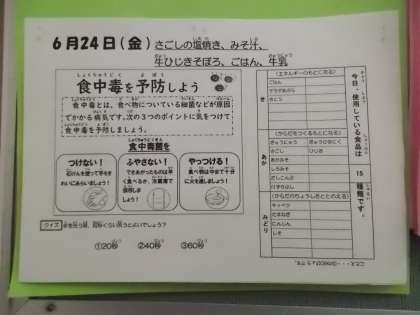 6月24日(金) さごしの塩焼き、みそ汁、
牛ひじきそぼろ、ごはん、牛乳
食中毒を予防しよう
食中毒とは、食べ物についている細菌などが原因
でかかる病気です。次の3つのポイントに気をつけて
食中毒を予防しましょう。
食中毒菌を
つけない!
石けんを使って手をき
れいにあらいましょう!
ふやさない!
できあがったものは早
く食べるか、冷蔵庫で
保存しま
しょう!
やっつける!
食べ物は中まで十分
に火を通しましょう!
クイズ 手を洗う時、何秒ぐらい洗うとよいでしょう?
①20秒 ②40秒 ③60秒
今日、使用している食品は 15 種類です。
き
(エネルギーのもとになる)
ごはん
さとう
あか
(からだをつくるもとになる)
ぎゅうにゅう
ぎゅうひきにく
さごし
ひじき
あかみそ
しろみそ
だしこんぶ
けずりぶし
みどり
(からだのちょうしをととのえる)
キャベツ
たまねぎ
にんじん
しそ